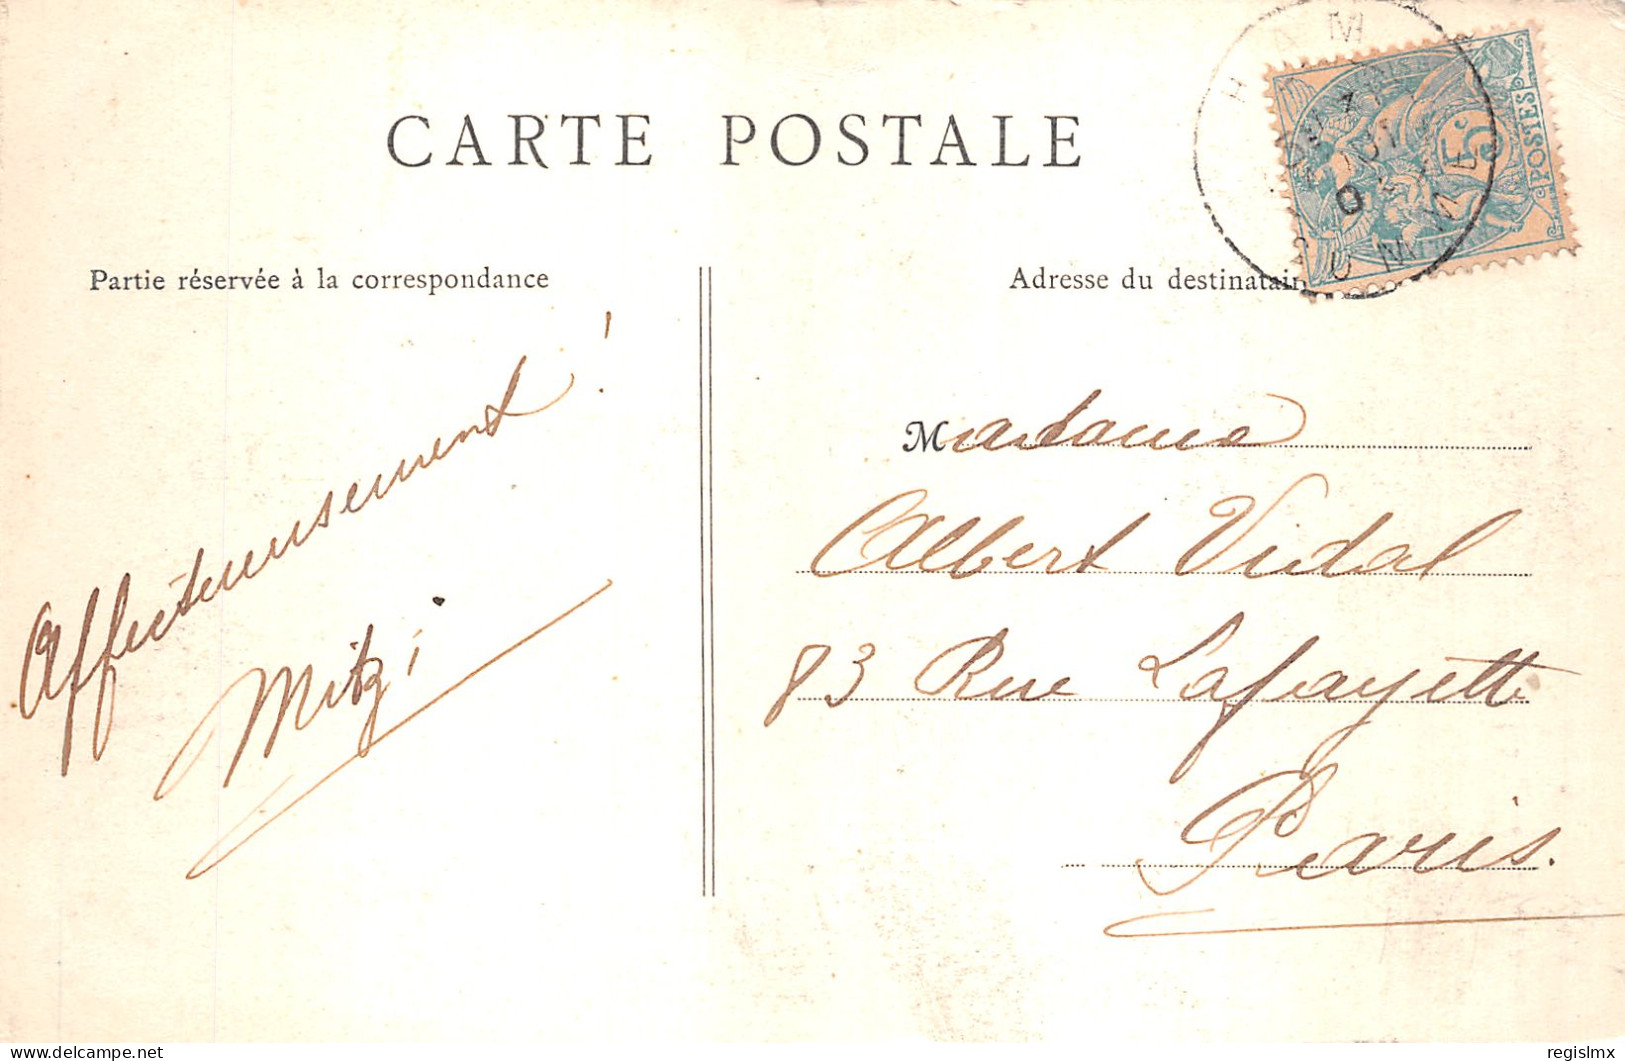 CARTE POSTALE
Partie réservée à la correspondance
Adresse du destinatair
HAM
SOMME
5c
POSTES
Affectueusement !
Mitzi
Madame
Albert Vidal
83 Rue Lafayette
Paris.
delcampe.net
regislmx